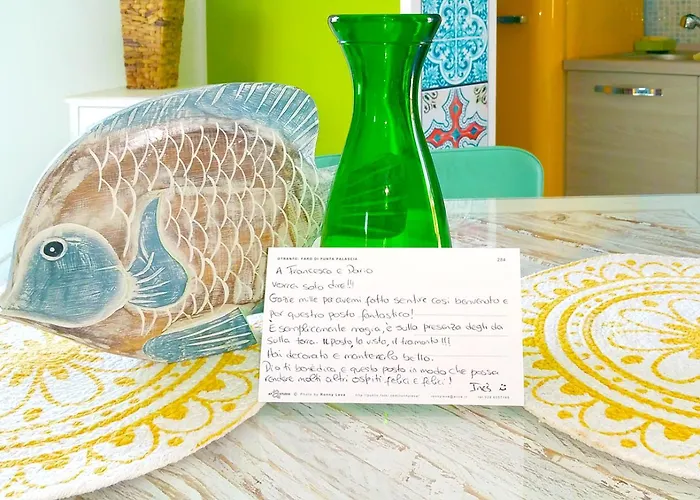 OTRANTO: FARO DI PUNTA PALASCIA 204
A Francesco e Dario
Vorrei solo dire!!!
Grazie mille per avermi fatto sentire così benvenuto e
per questo posto fantastico!
È semplicemente magia, è sulla presenza degli da
sulla terra. Il posto, la vista, il tramonto!!!
Hai decorato e mantenerlo bello.
Dio ti benedica, e questo posto in modo che possa
rendere molti altri ospiti felici e felici! Inês
© Photo by Ronny Leva